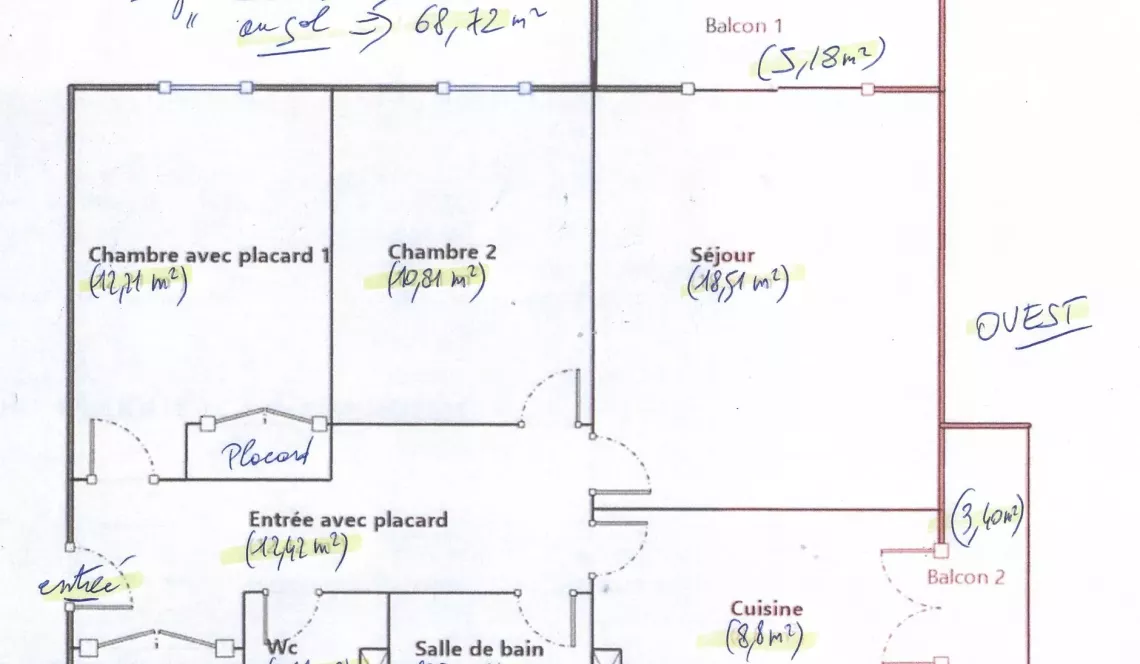 au sol => 68,72 m²
Balcon 1
(5,18m²)
Chambre avec placard 1
(12,71 m²)
Chambre 2
(10,81 m²)
Séjour
(18,51 m²)
OUEST
Placard
Entrée avec placard
(12,42 m²)
(3,40m²)
entrée
Balcon 2
Cuisine
(8,8m²)
Wc
Salle de bain